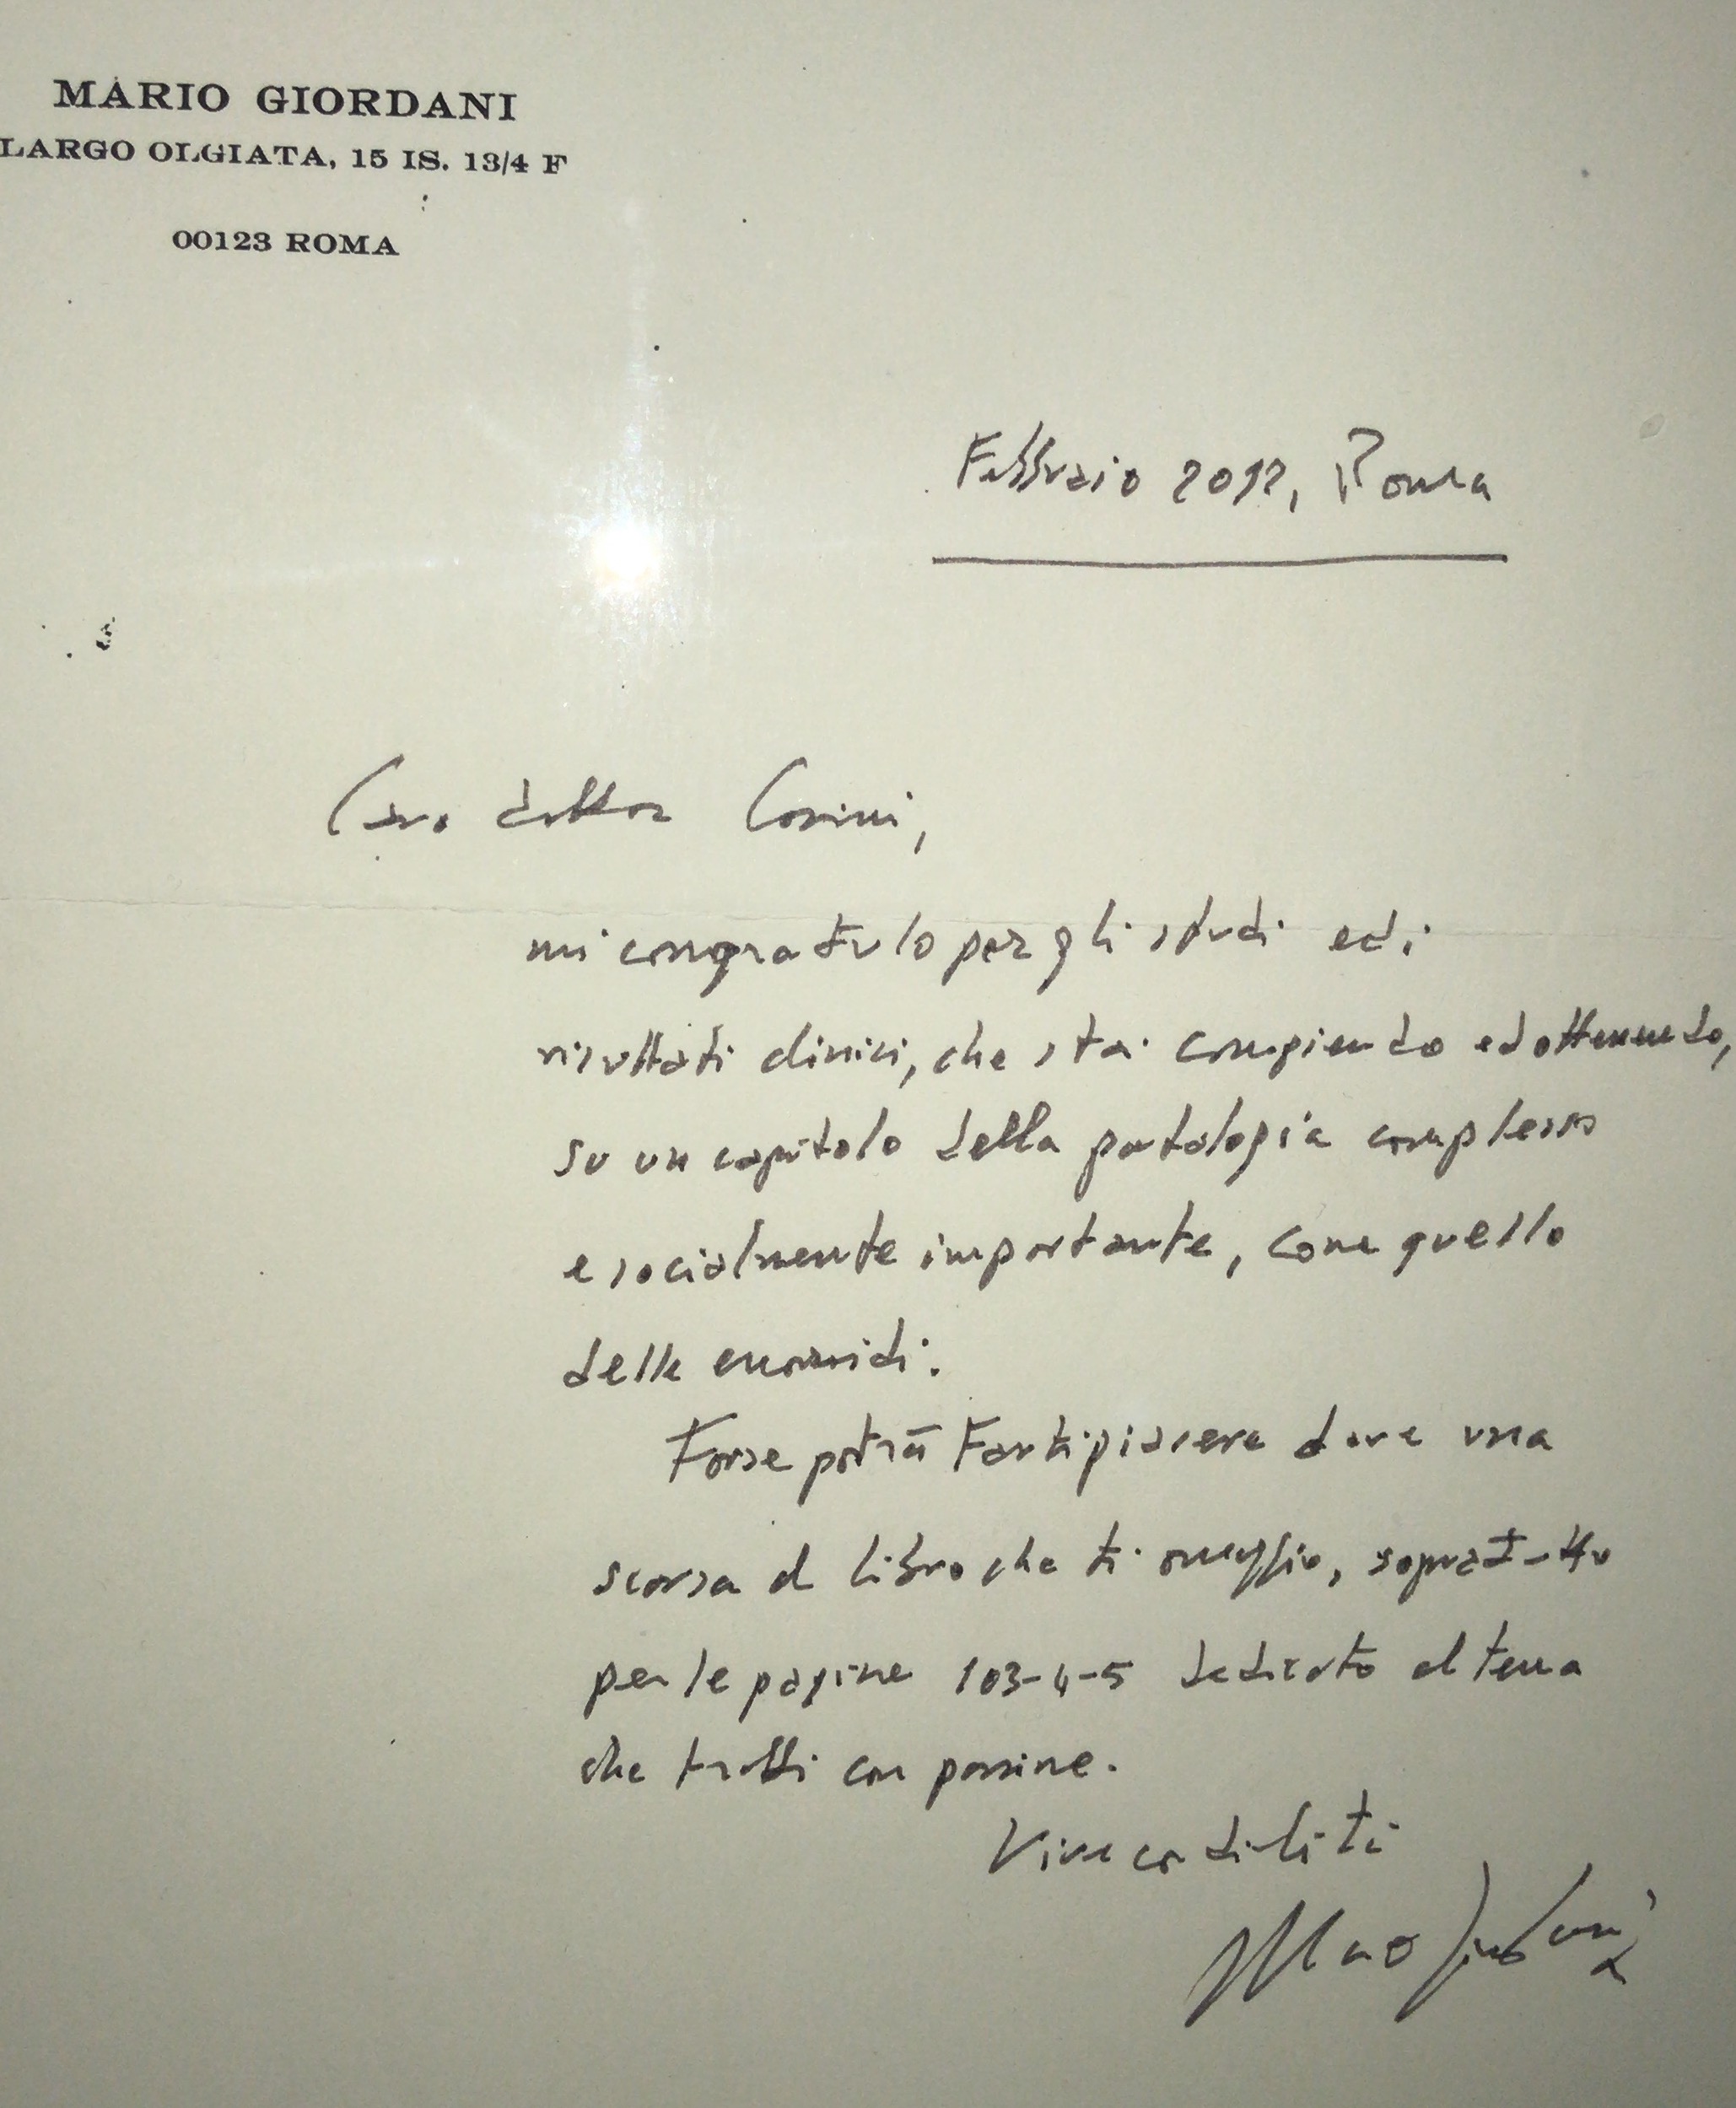 MARIO GIORDANI
LARGO OLGIATA, 15 IS. 13/4 F
00123 ROMA
Febbraio 2012, Roma
Caro dottor
mi congratulo per gli studi ed i
risultati clinici, che stai compiendo ed ottenendo,
su un capitolo della patologia complesso
e socialmente importante, come quello
delle emorroidi.
Forse potrà farti piacere dare una
scorsa al libro che ti omaggio, sopratutto
per le pagine 103-4-5 dedicato al tema
che tratti con passione.
Vive cordialità
Mario Giordani